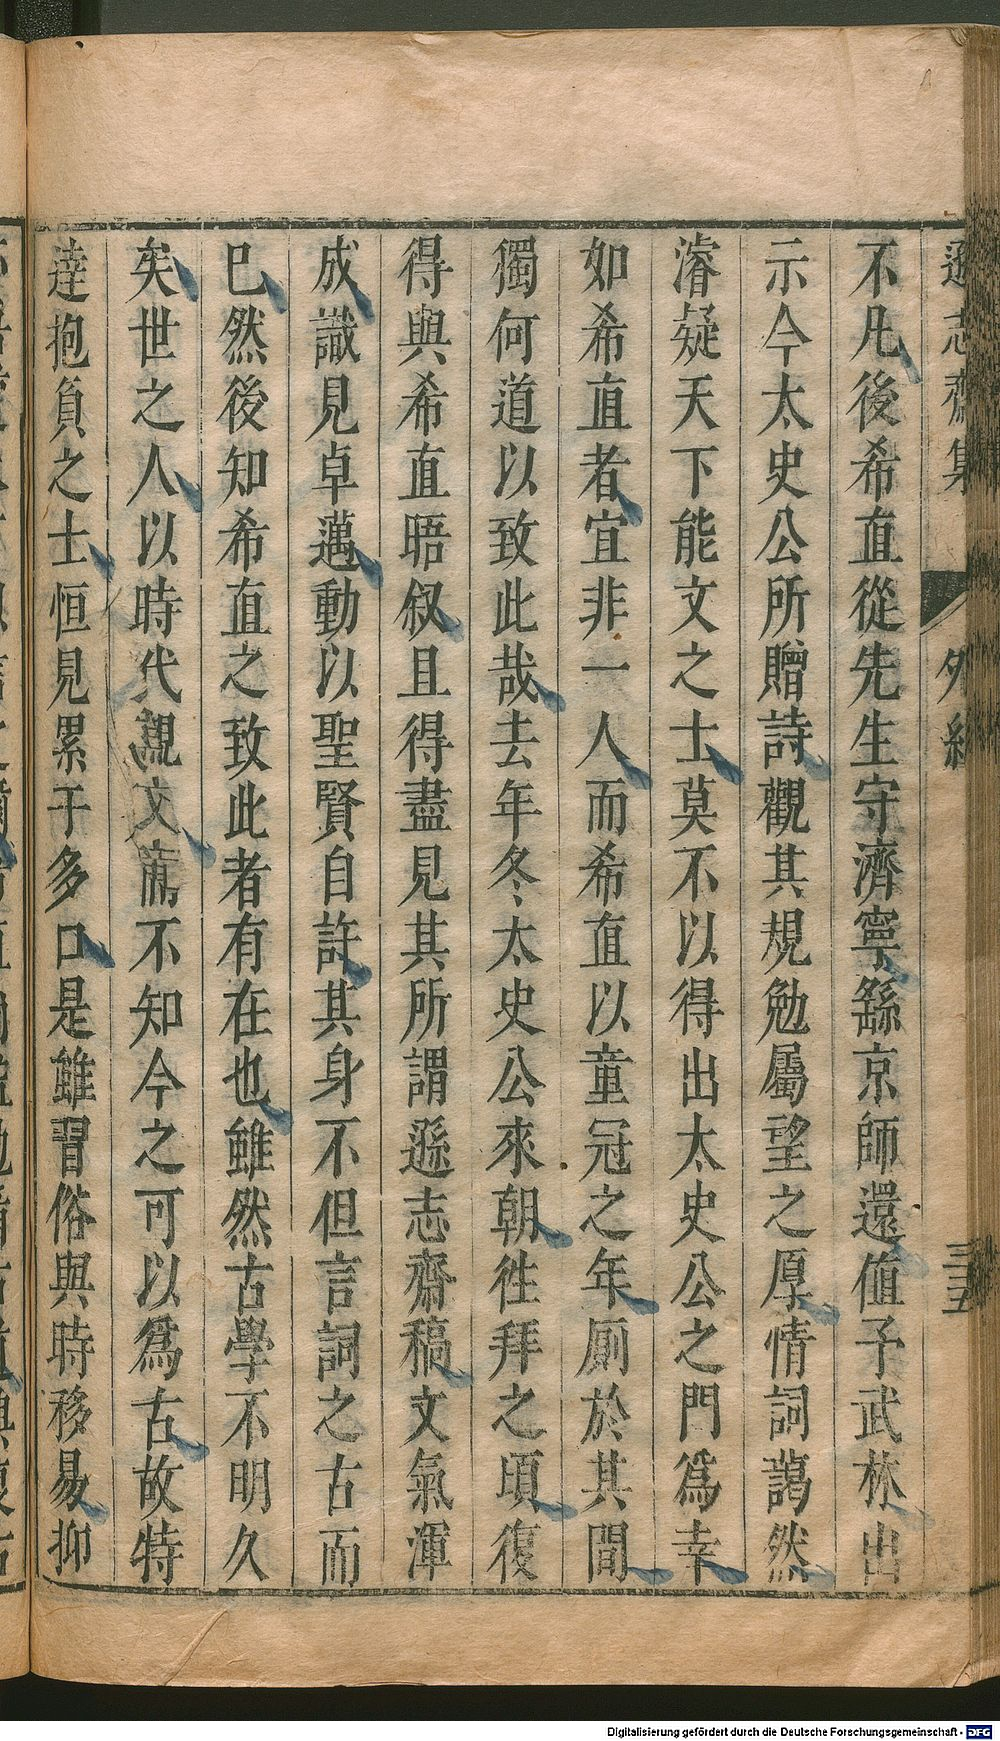 遜志齋集 外紀 三五
不凡後希直從先生守濟寧繇京師還值予武林出
示今太史公所贈詩觀其規勉屬望之厚情詞藹然
濬疑天下能文之士莫不以得出太史公之門爲幸
如希直者宜非一人而希直以童冠之年厠於其間
獨何道以致此哉去年冬太史公來朝徃拜之頃復
得與希直晤叙且得盡見其所謂遜志齋稿文氣渾
成識見卓邁動以聖賢自許其身不但言詞之古而
已然後知希直之致此者有在也雖然古學不明久
矣世之人以時代覘文不知今之可以爲古故特
達抱負之士恒見累于多口是雖習俗與時移易抑
Digitalisierung gefördert durch die Deutsche Forschungsgemeinschaft - DFG